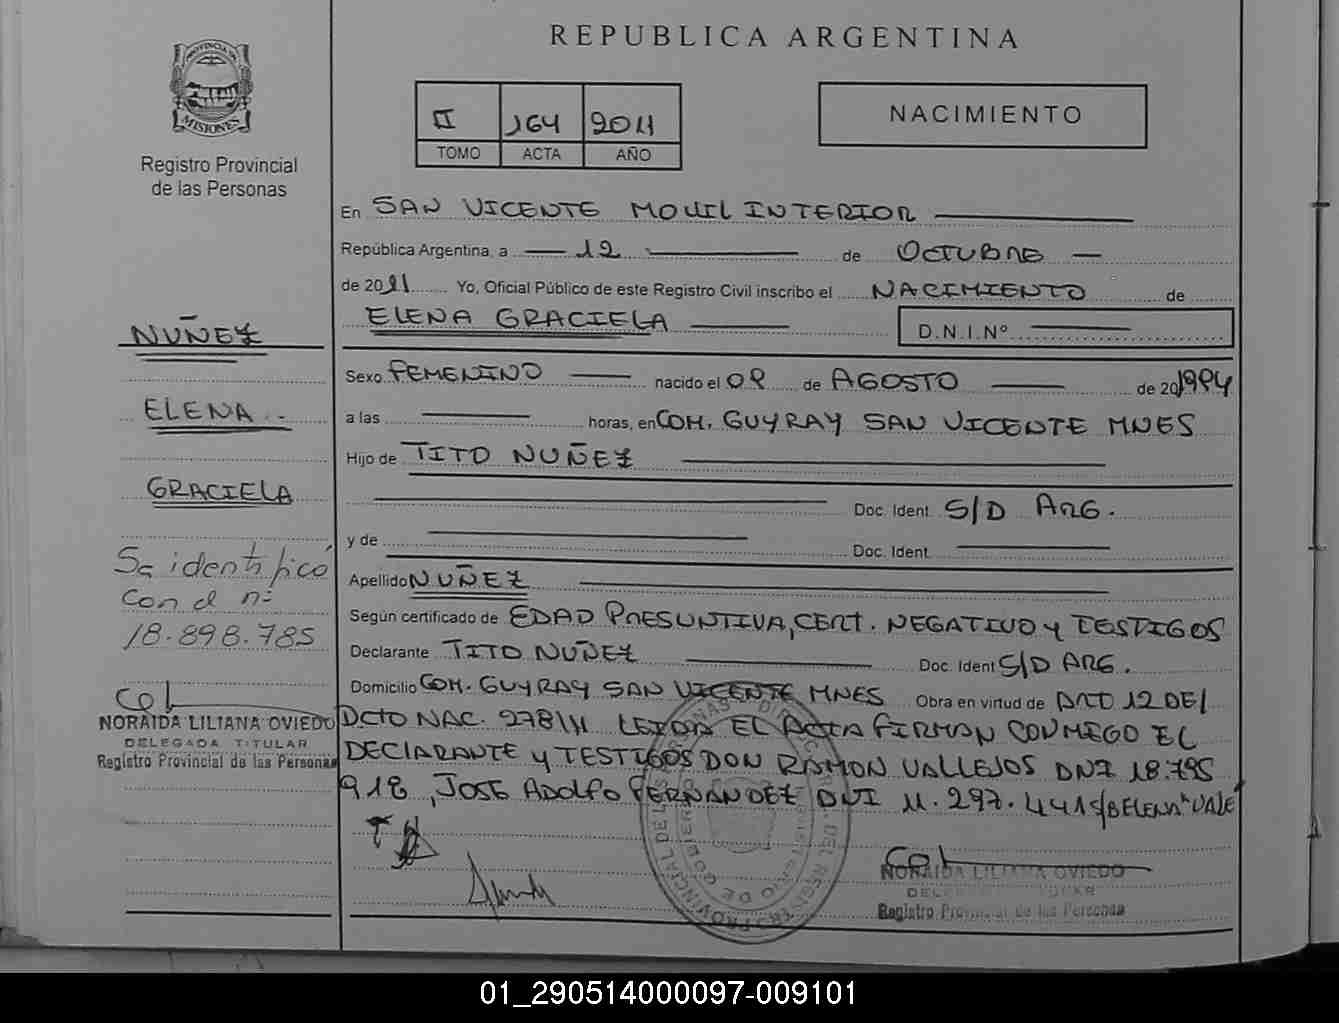 REPUBLICA ARGENTINA
PROVINCIA DE
MISIONES
Registro Provincial
de las Personas
II 164 2011
TOMO ACTA AÑO
NACIMIENTO
En SAN VICENTE MOVIL INTERIOR
República Argentina, a 12 de OCTUBRE
de 2011 Yo, Oficial Público de este Registro Civil inscribo el NACIMIENTO de
ELENA GRACIELA D.N.I.Nº
Sexo FEMENINO nacido el 09 de AGOSTO de 201994
a las horas, en COM. GUYRAY SAN VICENTE MNES
Hijo de TITO NUÑEZ
Doc. Ident. S/D ARG.
y de Doc. Ident.
Apellido NUÑEZ
Según certificado de EDAD PRESUNTIVA, CERT. NEGATIVO y TESTIGOS
Declarante TITO NUÑEZ Doc. Ident S/D ARG.
Domicilio COM. GUYRAY SAN VICENTE MNES Obra en virtud de ART 12 DEL
DCTO NAC. 278/11 LEIDA EL ACTA FIRMAN CONMIGO EL
DECLARANTE y TESTIGOS DON RAMON VALLEJOS DNI 18.795
918, JOSE ADOLFO FERNANDEZ DNI 11.297.441 S/B ELENA "VALE"
NORAIDA LILIANA OVIEDO
Registro Provincial de las Personas
NUÑEZ
ELENA
GRACIELA
Se identificó
con el nº
18.898.785
NORAIDA LILIANA OVIEDO
DELEGADA TITULAR
Registro Provincial de las Personas
01_290514000097-009101